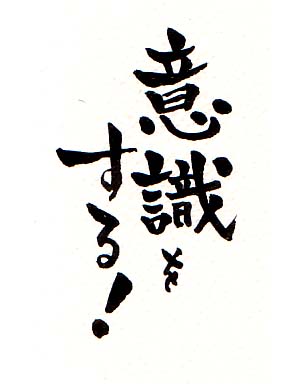 意識を
する！